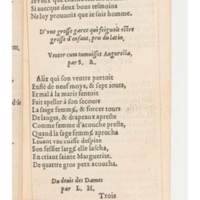 Si n'auque deux bons tesmoins
Ne loy prouuoit que ie suis homme.
D'vne grosse garce qui feignoit estre
grosse d'enfant, pris du latin,
Venter cum tumuisset Augurella,
par S. R.
Alix qui son ventre portoit
Enflé de neuf moys, & sept iours,
Et mal à la marris sentoit
Fait apeller à son secours
La sage femme, & forcer tours
De langues, & drapeaux demande
Comme femme d'acouche preste,
Quand la sage femme aprocha
Leuant vne cuisse despite
Son fessier large elle lascha,
En criant sainte Marguerite,
De quatre gros petz acoucha.
Du deuis des Dames
par L. H.
Trois